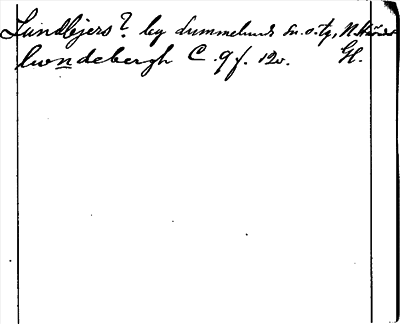 Lundbjers? by Lummelunds sn. o. tg, N.
lwndebergh C. 9 f. 12v. Gl.